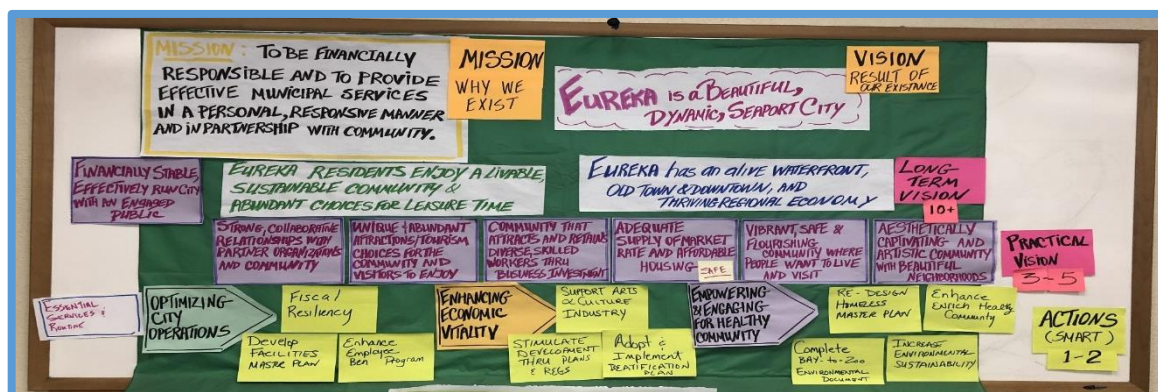 MISSION: TO BE FINANCIALLY
RESPONSIBLE AND TO PROVIDE
EFFECTIVE MUNICIPAL SERVICES
IN A PERSONAL, RESPONSIVE MANNER
AND IN PARTNERSHIP WITH COMMUNITY.
MISSION
WHY WE
EXIST
EUREKA IS A BEAUTIFUL,
DYNAMIC, SEAPORT CITY
VISION
RESULT OF
OUR EXISTANCE
FINANCIALLY STABLE,
EFFECTIVELY RUN CITY
WITH AN ENGAGED
PUBLIC
EUREKA RESIDENTS ENJOY A LIVABLE,
SUSTAINABLE COMMUNITY &
ABUNDANT CHOICES FOR LEISURE TIME
EUREKA has an alive WATERFRONT,
OLD TOWN & DOWNTOWN, AND
THRIVING REGIONAL ECONOMY
LONG
TERM
VISION
10+
STRONG, COLLABORATIVE
RELATIONSHIPS WITH
PARTNER ORGANIZATIONS
AND COMMUNITY
UNIQUE & ABUNDANT
ATTRACTIONS/TOURISM
CHOICES FOR THE
COMMUNITY AND
VISITORS TO ENJOY
COMMUNITY THAT
ATTRACTS AND RETAINS
DIVERSE, SKILLED
WORKERS THRU
BUSINESS INVESTMENT
ADEQUATE
SUPPLY OF MARKET
RATE AND AFFORDABLE
HOUSING
SAFE
VIBRANT, SAFE &
FLOURISHING
COMMUNITY WHERE
PEOPLE WANT TO LIVE
AND VISIT
AESTHETICALLY
CAPTIVATING AND
ARTISTIC COMMUNITY
WITH BEAUTIFUL
NEIGHBORHOODS
PRACTICAL
VISION
3-5
ESSENTIAL
SERVICES &
ROUTINE
OPTIMIZING
CITY
OPERATIONS
Fiscal
Resiliency
Develop
FACILITIES
MASTER PLAN
Enhance
Employee
Ben Program
ENHANCING
ECONOMIC
VITALITY
SUPPORT ARTS
& CULTURE
INDUSTRY
STIMULATE
DEVELOPMENT
THRU PLANS
& REGS
Adopt &
Implement
BEATIFICATION
PLAN
EMPOWERING
& ENGAGING
FOR HEALTHY
COMMUNITY
RE-DESIGN
HOMELESS
MASTER PLAN
Enhance
ENRICH Healthy
Community
Complete
BAY-to-ZOO
ENVIRONMENTAL
DOCUMENT
INCREASE
ENVIRONMENTAL
SUSTAINABILITY
ACTIONS
(SMART)
1-2